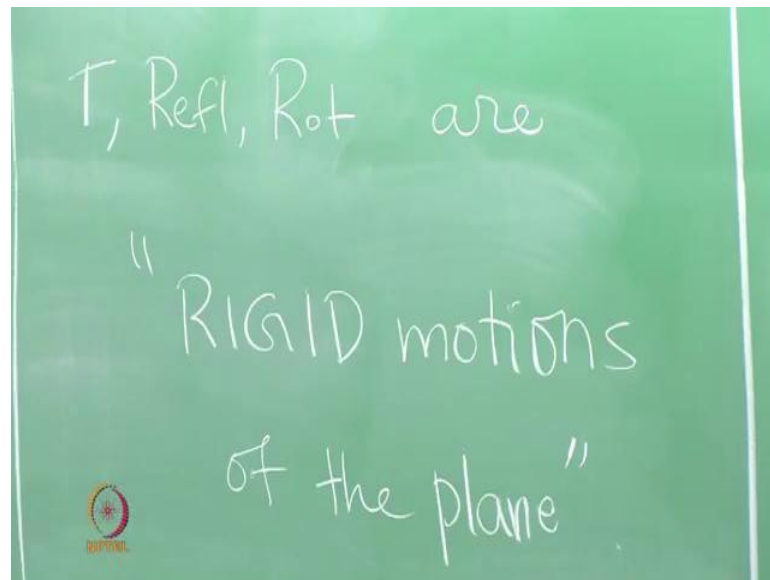 T, Refl, Rot are
"RIGID motions
of the plane"
NPTEL